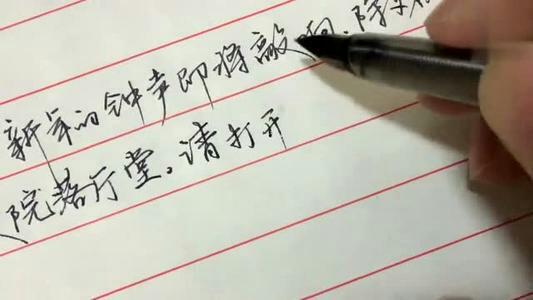 新年的钟声即将敲响、除
院落厅堂。请打开